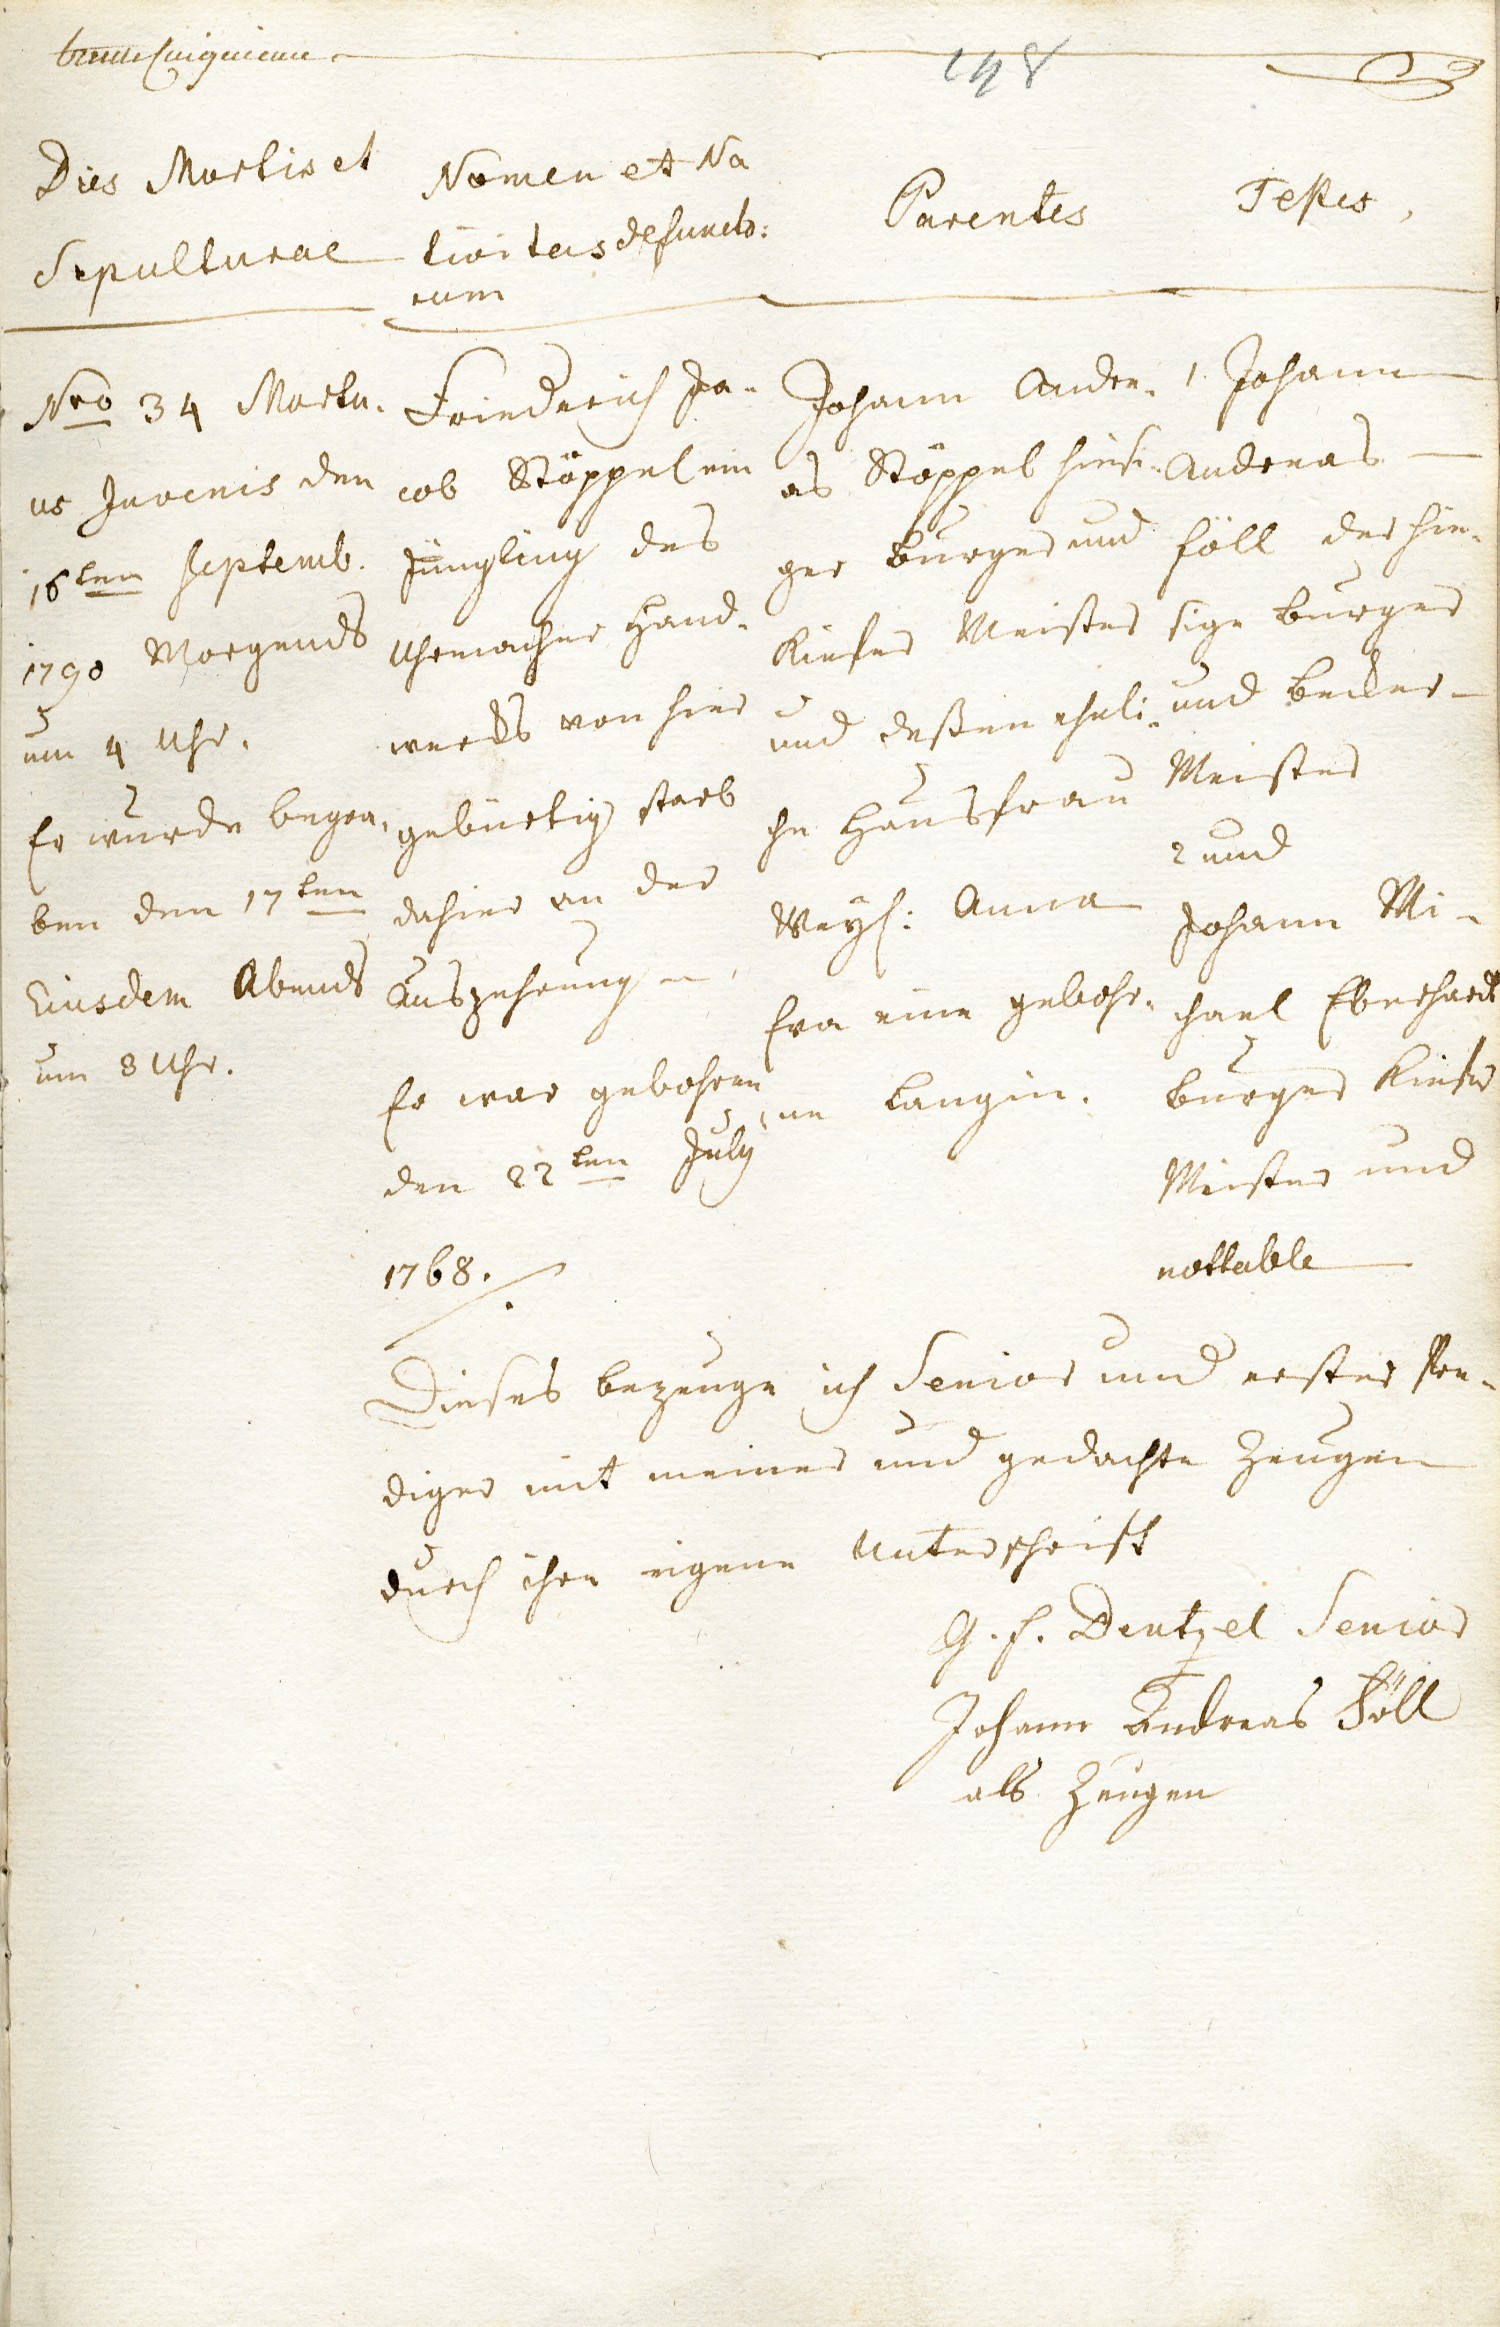 148
Dies Mortis et
Sepulturae
Nomen et Na
tivitas defuncto:
rum
Parentes
Testes,
Nro 34 Mortu-
us Juvenis den
16ten Septemb.
1790 Morgends
um 4 Uhr.
Er wurde begra-
ben den 17ten
Eiusdem Abends
um 8 Uhr.
Friedrich Ja-
cob Stöppel ein
Jüngling des
Uhrmacher Hand-
wercks von hier
gebürtig starb
dahier an der
Auszehrung.
Er war gebohren
den 22ten July
1768.
Johann Andre-
as Stöppel hiesi-
ger Burger und
Kiefer Meister
und deßen eheli-
che Hausfrau
Weyl: Anna
Eva eine gebohr-
ne Langin.
1. Johann
Andreas
Föll der hie-
sige Burger
und Becker
Meister
2 und
Johann Mi-
chael Eberhardt
Burger Kiefer
Meister und
nottable
Dieses bezeuge ich Senior und erster Pre-
diger mit meiner und gedachte Zeugen
durch ihre eigene Unterschrift
G. F. Dentzel Senior
Johann Andreas Föll
als Zeugen